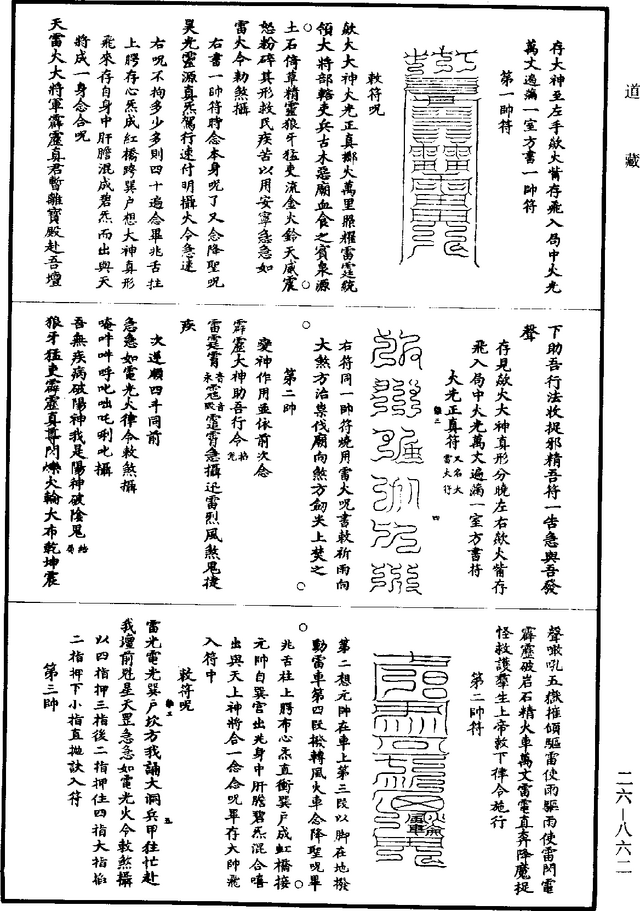 道藏
存大神至左手歘火前存飛入局中火光
萬丈遍滿一室方書一帥符
第一帥符
敕符呪
歘火大神火光正真鄉火萬里照耀雷霆統
領大將部轄吏兵古木惡廟血食之賓泉源
土石倚草精靈狼牙猛吏流金火鈴天威震
怒粉碎其形救民疾苦以用安寧急急如
雷火令勅煞攝
右書一帥符時念本身呪了又念降聖呪
昊光靈源真炁駕行速付明攝火令急速
右呪不拘多少多則四十遍念畢兆舌拄
上腭存心炁成紅橋跨巽戶想大神真形
飛來存自身中肝膽混成碧炁而出與天
將成一身念合呪
天雷火大將軍霹靂真君暫離寶殿赴吾壇
下助吾行法收捉邪精吾符一告急與吾發
聲
存見歘火大神真形分曉左右歘火前存
飛入局中火光萬丈遍滿一室方書符
火光正真符又名火雷火符
右符同一帥符燒用雷火呪書敕祈雨向
大煞方治祟伐廟向煞方劒尖上焚之
第二帥
變神作用並依前次念
霹靂大神助吾行令
雷霆霄霐霆霄急攝迅雷烈風煞鬼捷
疾
次逆順四斗同前
急急如電光火律令敕煞攝
唵吽吽呼叱咄吒唎叱攝
吾無疾病破陽神我是陽神破陰鬼
狼牙猛吏霹靂真尊閃爍火輪大布乾坤震
聲嗷吼五嶽摧傾驅雷使雨驅雨使雷閃電
霹靂破岩石精火車萬丈雷電直奔降魔捉
怪救護羣生上帝敕下律令施行
第二帥符
第二想元帥在車上第三段以脚在地撥
動雷車第四段撥轉風火車念降聖呪畢
兆舌柱上腭布心炁直衝巽戶成虹橋接
元帥自巽宮出兆身中肝膽碧炁混合嘻
出與天上神將合一念念呪畢存大帥飛
入符中
敕符呪
雷光電光巽戶坎方我誦大洞兵甲往忙赴
我壇前魁星天罡急急如電光火令敕煞攝
以四指押三指後二指押住四指大指掐
二指押下小指直拋訣入符
第三帥
二六—八六二